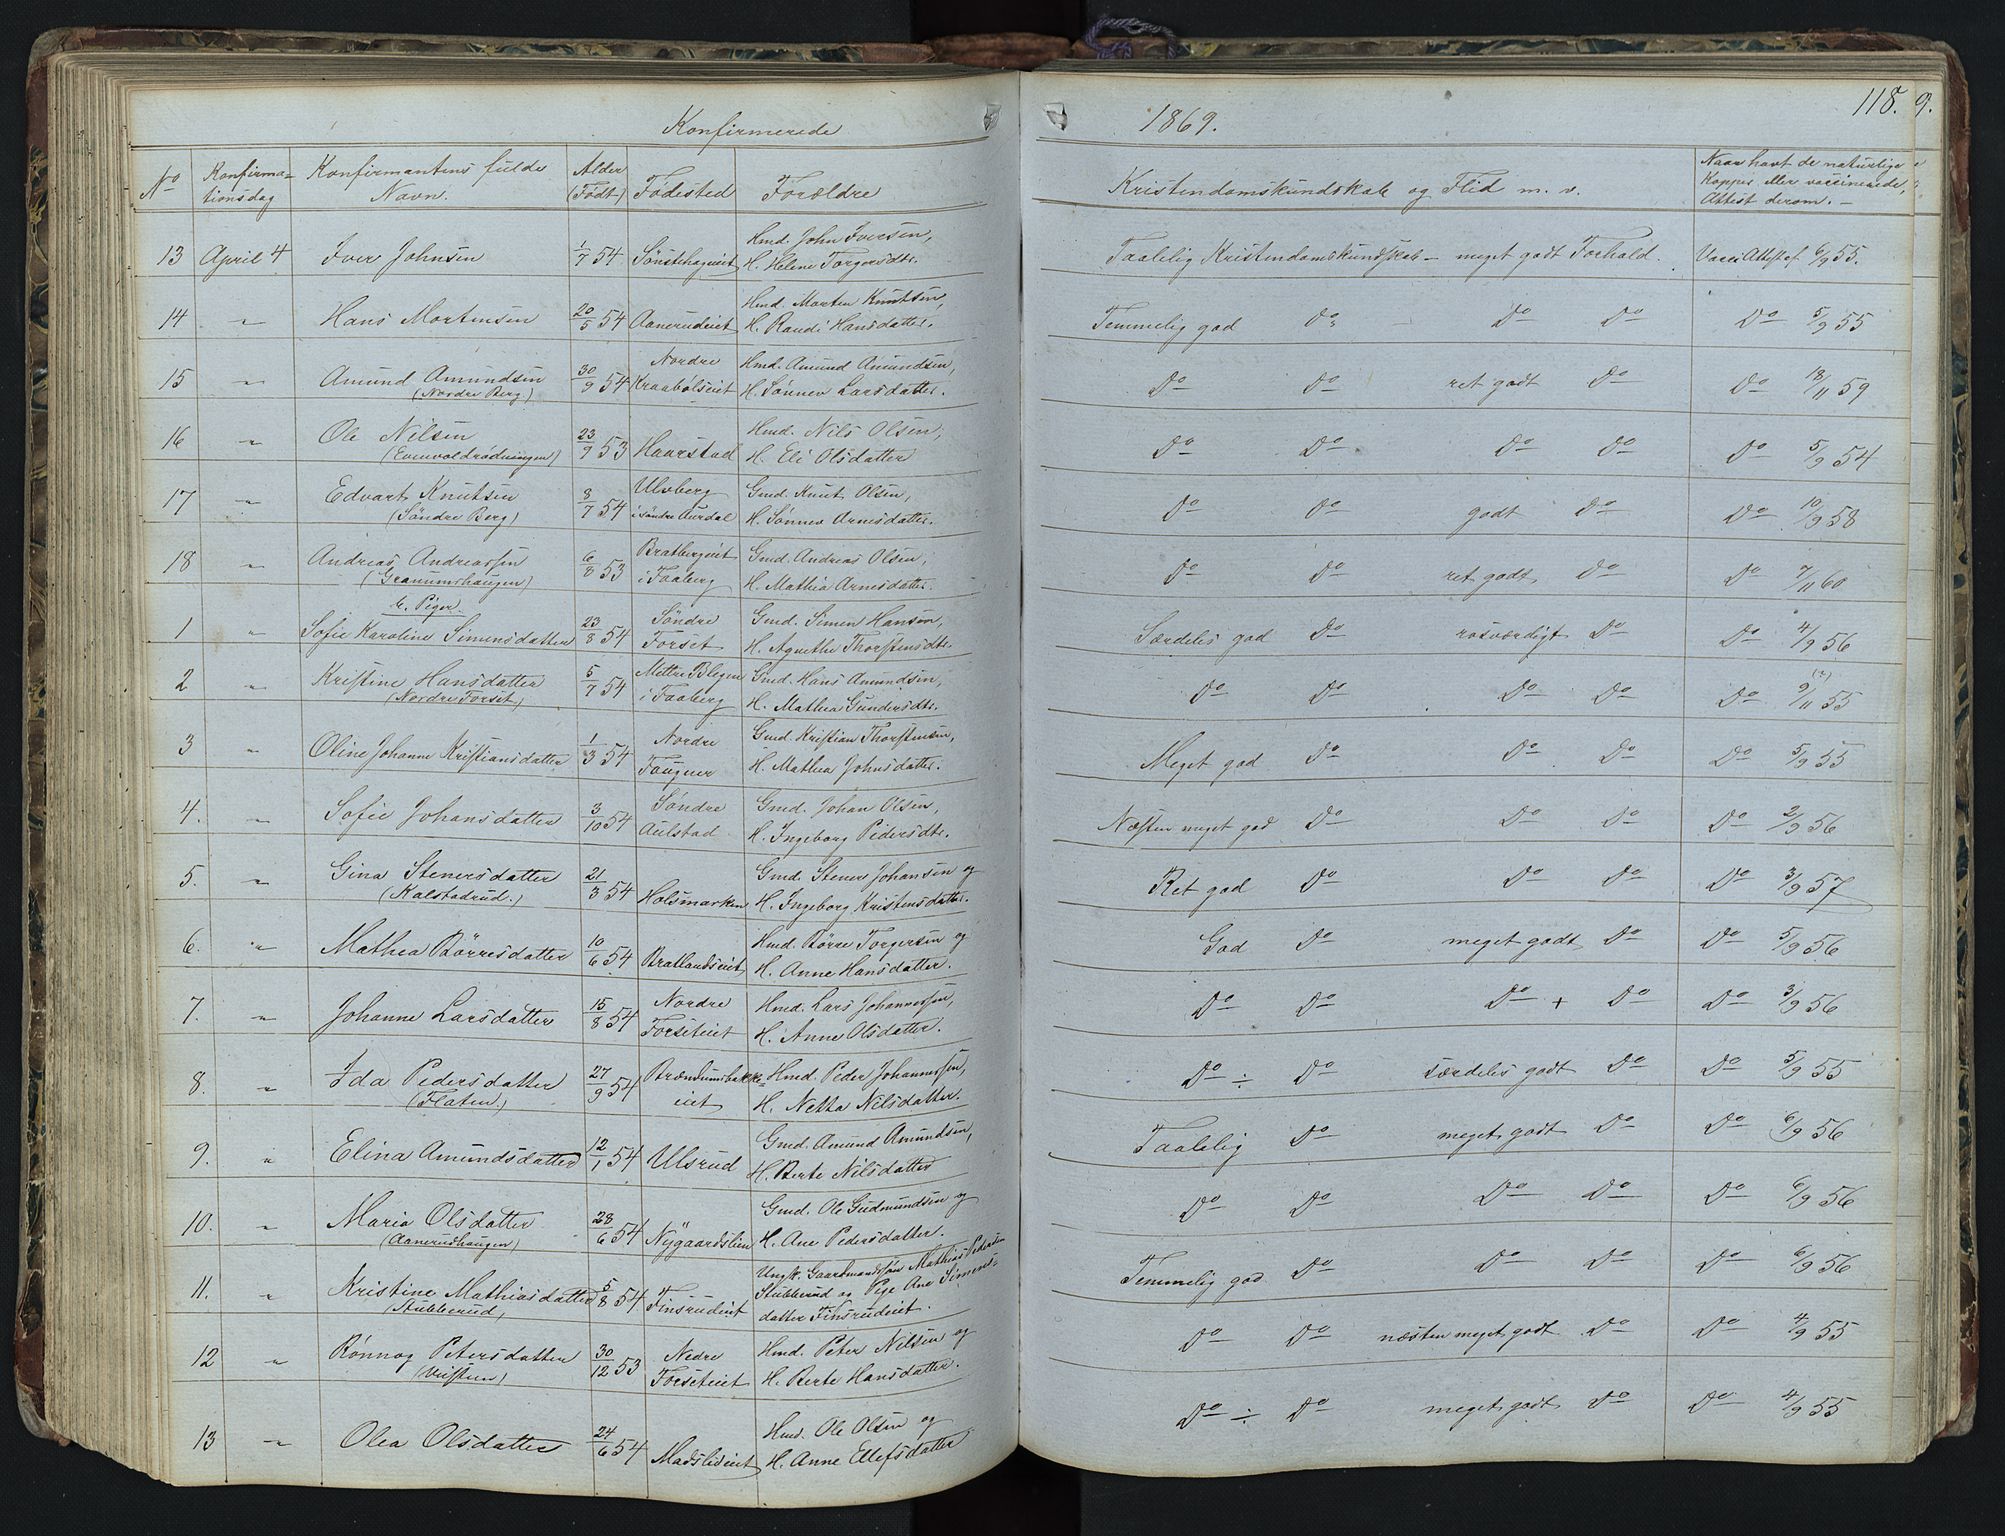 Konfirmerede
1869.
118. 9.
No
Konfirma-
tionsdag
Konfirmantens fulde
Navn.
Alder
(Födt)
Födested
Forældre
Kristendomskundskab og Flid m. v.
Naar havt de naturlige
Kopper eller vaccinerede,
Attest derom. —
13 April 4 Iver Johnsen 1/7 54 Sönstehageiet Hmd. John Iversen,
H. Helene Torgersdtr.
Taalelig Kristendomskundskab — meget godt Forhold. Vacc. Attest af 6/9 55.
14 " Hans Mortensen 20/5 54 Aanerudeiet Hmd. Morten Knutsen,
H. Randi Hansdatter.
Temmelig god Do — Do Do Do 5/9 55
15 " Amund Amundsen 30/9 54 Nordre Hmd. Amund Amundsen,
(Nordre Berg) Kraabölseiet H. Sönnev Larsdatter.
Do Do ret godt Do Do 18/11 59
16 " Ole Nilsen 23/9 53 Haarstad Hmd. Nils Olsen,
(Evenvoldrödningen) H. Eli Olsdatter
Do Do Do Do Do 5/9 54
17 " Edvart Knutsen 8/7 54 Ulvberg Gmd. Knut Olsen,
(Söndre Berg) i söndre Aurdal H. Sönnev Arnesdatter.
Do Do godt Do Do 10/9 58
18 " Andreas Andreassen 6/8 53 Bratbergeiet Gmd. Andreas Olsen,
(Granumshaugen) i Faaberg H. Mathea Arnesdatter.
Do Do ret godt Do Do 7/11 60
b. Piger.
1 " Sofie Karoline Simensdatter 23/8 54 Söndre Gmd. Simen Hansen,
Forset H. Agnethe Thorstensdtr.
Særdeles god Do rosværdigt Do Do 4/9 56
2 " Kristine Hansdatter 5/7 54 Mettre Blegen Gmd. Hans Amundsen,
(Nordre Forset) i Faaberg H. Mathea Gundersdtr.
Do Do Do Do Do 9/11 55
3 " Oline Johanne Kristiansdatter 1/3 54 Nordre Gmd. Kristian Thorstensen,
Fougner H. Mathea Johnsdatter.
Meget god Do Do Do Do 5/9 55
4. " Sofie Johansdatter 3/10 54 Söndre Gmd. Johan Olsen,
Aulstad H. Ingeborg Pedersdtr.
Næsten meget god Do Do Do Do 2/9 56
5. " Gina Stenersdatter 21/3 54 Holsmarken Gmd. Stener Johansen og
(Kalstadrud.) H. Ingeborg Kristensdatter.
Ret god Do Do Do Do 3/9 57
6. " Mathea Börresdatter 10/6 54 Bratlandseiet Hmd. Börre Torgersen og
H. Anne Hansdatter.
God Do meget godt Do Do 5/9 56
7. " Johanne Larsdatter 15/8 54 Nordre Hmd. Lars Johannessen,
Forseteiet H. Anne Olsdatter.
Do Do Do + Do Do 3/9 56
8. " Ida Pedersdatter 27/9 54 Brændumsbakke- Hmd. Peder Johannessen,
(Flaten.) eiet H. Netta Nilsdatter.
Do ÷ Do særdeles godt Do Do 5/9 55
9. " Elina Amundsdatter 12/1 54 Ulsrud Gmd. Amund Amundsen,
H. Berte Nilsdatter
Taalelig Do meget godt Do Do 6/9 56
10. " Maria Olsdatter 28/6 54 Nygaardslien Gmd. Ole Gudmundsen og
(Aanerudhaugen) H. Ane Pedersdatter.
Do Do Do Do Do 6/9 56
11. " Kristine Mathiasdatter 5/8 54 Finsrudeiet Ungk. Gaardmandssön Mathias Pedersen
(Stubberud) Stubberud og Pige Ane Simens-
datter Finsrudeiet.
Temmelig god Do Do Do Do 6/9 56
12 " Rönnog Petersdatter 30/12 53 Nedre Hmd. Peter Nilsen og
Forseteiet H. Berte Hansdatter.
Do Do næsten meget godt Do Do 4/9 55
13 " Olea Olsdatter 24/6 54 Madslieiet Hmd. Ole Olsen og
H. Anne Ellefsdatter
Do ÷ Do meget godt Do Do 4/9 55